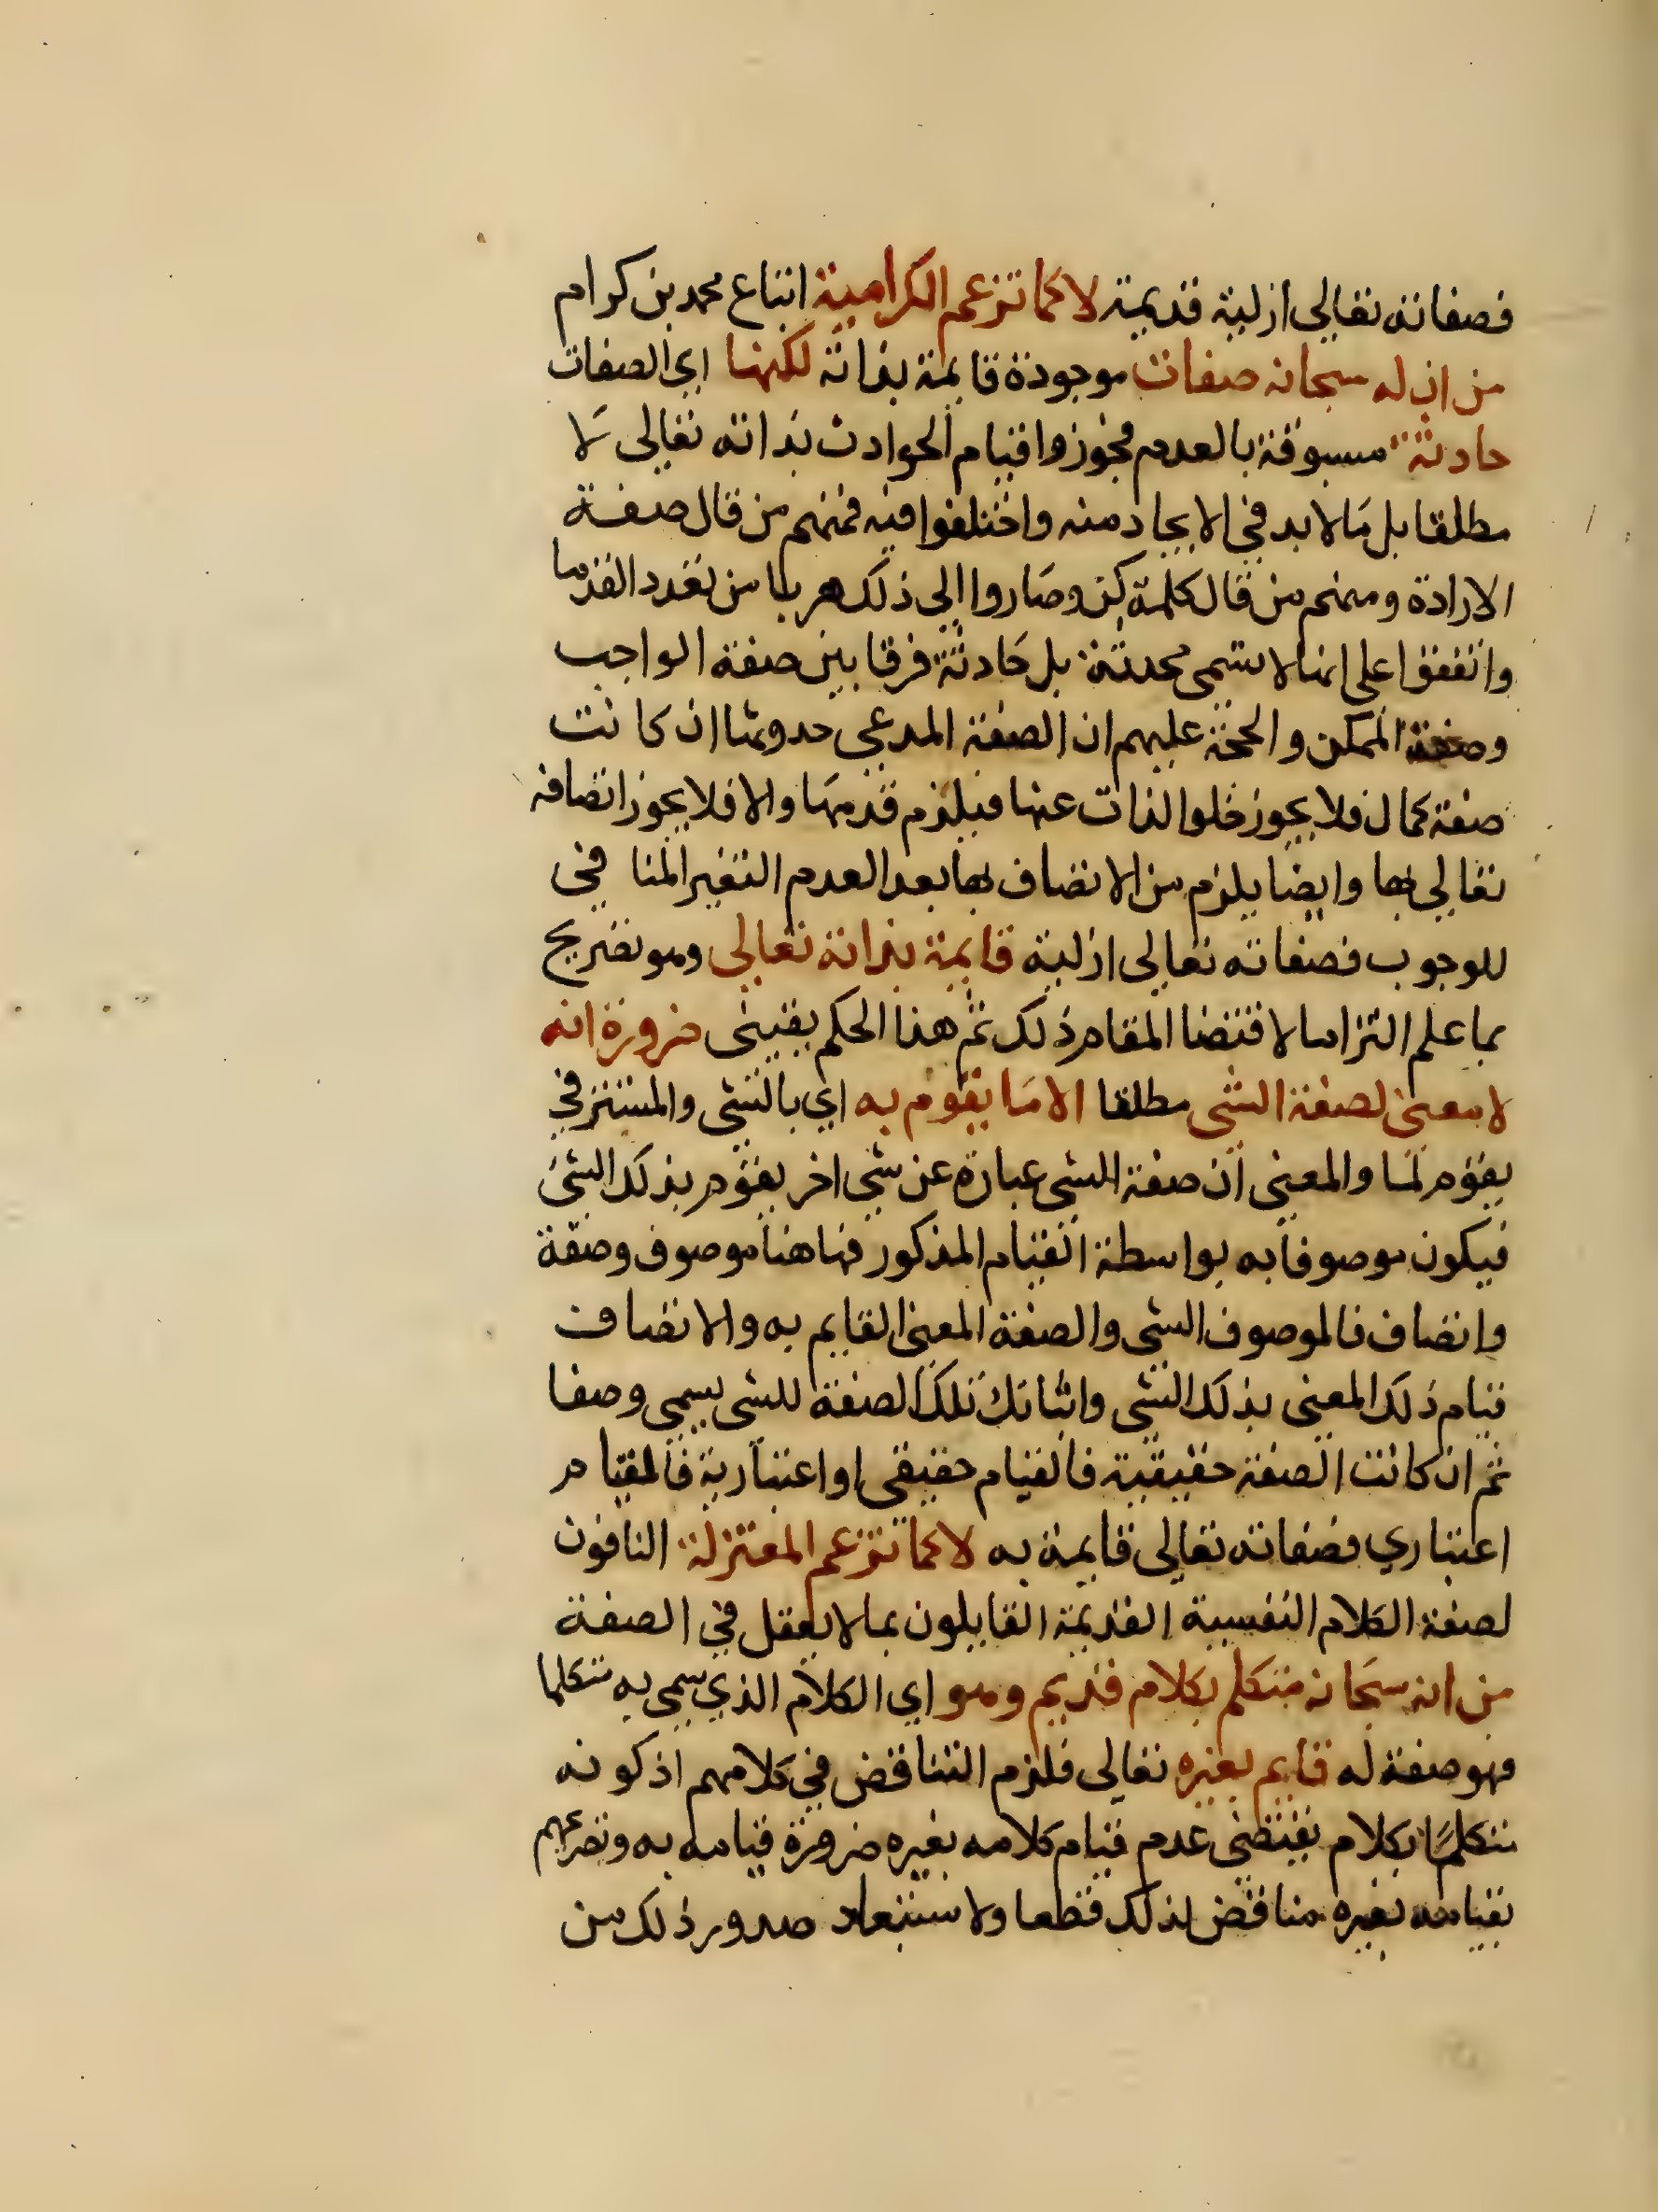 فصفاته تعالي ازلية قديمة لا كما تزعم الكرامية اتباع محمد بن كرام
من ان له سبحانه صفات موجودة قايمة بذاته لكنها اي الصفات
حادثة مسبوقة بالعدم فجوزوا قيام الحوادث بذاته تعالي لا
مطلقا بل مالا بد في الايجاد منه واختلفوا فيه فمنهم من قال صفة
الارادة ومنهم من قال كلمة كن وصاروا الي ذلك هربا من تعدد القدما
واتفقوا علي انها لا تسمي محدثة بل حادثة فرقا بين صفة الواجب
وصفة الممكن والحجة عليهم ان الصفة المدعي حدوثها ان كانت
صفة كمال فلا يجوز خلوا لذات عنها فيلزم قدمها والا فلا يجوز اتصافه
تعالي بها وايضا يلزم من الاتصاف بها بعد العدم التغير المنا في
للوجوب فصفاته تعالي ازلية قايمة بذاته تعالي وهو تصريح
بما علم التزاما لاقتضا المقام ذلك ثم هذا الحكم يقيني ضرورة انه
لا معني لصفة الشي مطلقا الا ما يقوم به اي بالشي والمستتر في
يقوم لما والمعني ان صفة الشي عبارة عن شي اخر يقوم بذلك الشي
فيكون موصوفا به بواسطة القيام المذكور فها هنا موصوف وصفة
واتصاف فالموصوف الشي والصفة المعني القايم به والاتصاف
قيام ذلك المعني بذلك الشي واثباتك تلك الصفة للشي يسمي وصفا
ثم ان كانت الصفة حقيقية فالقيام حقيقي او اعتبارية فالقيام
اعتباري فصفاته تعالي قايمة به لا كما تزعم المعتزلة النافون
لصفة الكلام النفسية القديمة القايلون بما لا يعقل في الصفة
من انه سبحانه متكلم بكلام قديم وهو اي الكلام الذي سمي به متكلما
فهو صفة له قايم بغيره تعالي فلزم التناقض في كلامهم اذ كونه
متكلما بكلام يقتضي عدم قيام كلامه بغيره ضرورة قيامه به وتصريحهم
بقيامه بغيره مناقض لذلك قطعا ولا استبعاد صدور ذلك من